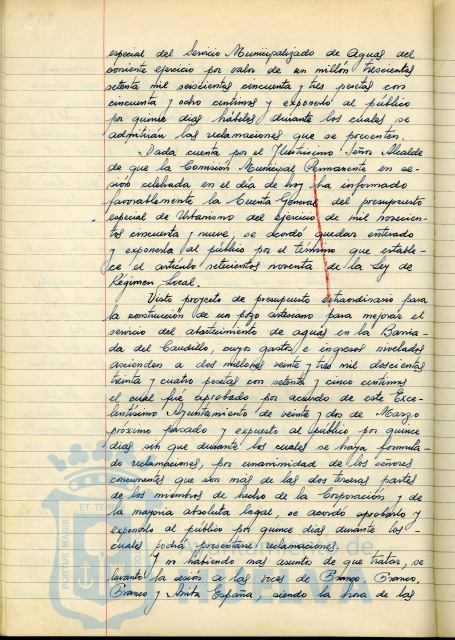 especial del Servicio Municipalizado de Aguas del
corriente ejercicio por valor de un millón trescientas
setenta mil seiscientas cincuenta y tres pesetas con
cincuenta y ocho centimos y exponerlo al público
por quince días hábiles durante los cuales se
admitirán las reclamaciones que se presenten.
Dada cuenta por el Ilustrisimo Señor Alcalde
de que la Comisión Municipal Permanente en se-
sión celebrada en el dia de hoy ha informado
favorablemente la Cuenta General del presupuesto
especial de Urbanismo del ejercicio de mil novecien-
tos cincuenta y nueve, se acordó quedar enterado
y exponerla al público por el término que estable-
ce el artículo setecientos noventa de la Ley de
Régimen Local.
Visto proyecto de presupuesto extraordinario para
la construcción de un pozo artesiano para mejorar el
servicio del abastecimiento de aguas en la Barria-
da del Caudillo, cuyos gastos e ingresos nivelados
ascienden a dos millones veinte y tres mil doscientas
treinta y cuatro pesetas con setenta y cinco centimos
el cual fué aprobado por acuerdo de este Exce-
lentísimo Ayuntamiento de veinte y dos de Marzo
próximo pasado y expuesto al público por quince
dias sin que durante los cuales se haya formula-
do reclamaciones, por unanimidad de los señores
concurrentes que son mas de las dos terceras partes
de los miembros de hecho de la Corporación y de
la mayoria absoluta legal, se acordó aprobarlo y
exponerlo al publico por quince dias durante los
cuales podrá presentarse reclamaciones.
Y no habiendo mas asuntos de que tratar, se
levantó la sesión a las voces de Franco, Franco,
Franco y Arriba España, siendo la hora de las
PORTUS MARIS
ET TER